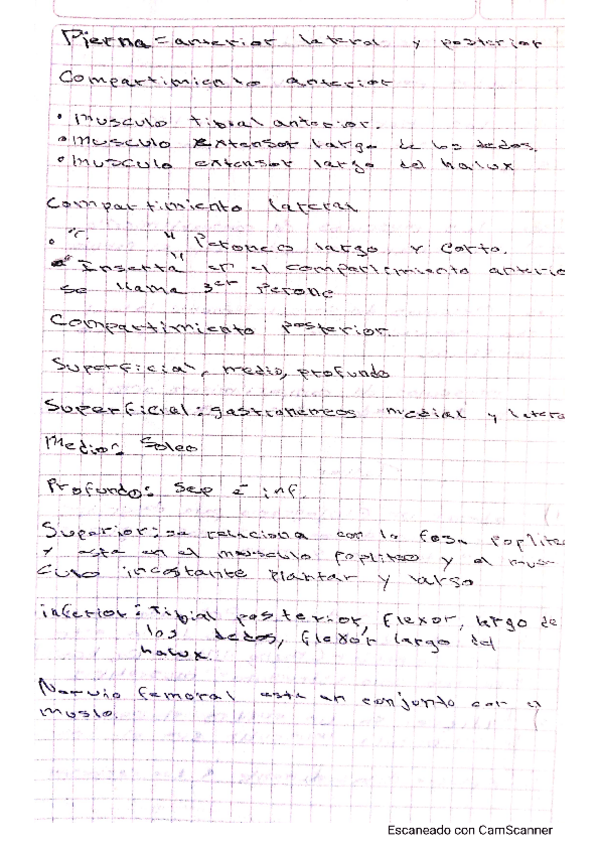 Pierna = anterior lateral y posterior
Compartimiento anterior
• Musculo tibial anterior.
• Musculo extensor largo de los dedos.
• Musculo extensor largo del halux
Compartimiento lateral
• " " Peroneo largo y corto.
Inserta en el compartimiento anterio
se llama 3er Perone
Compartimiento posterior
Superficial, medio, profundo
Superficial: gastronemeos medial y latera
Medio: Soleo
Profundo: Sep e inf.
Superior: se relaciona con la fosa poplitea
y esta en el musculo popliteo y el mus
culo incostante plantar y largo
inferior: Tibial posterior, flexor, largo de
los dedos, flexor largo del
halux.
Nervio femoral esta en conjunto con el
muslo.
Escaneado con CamScanner